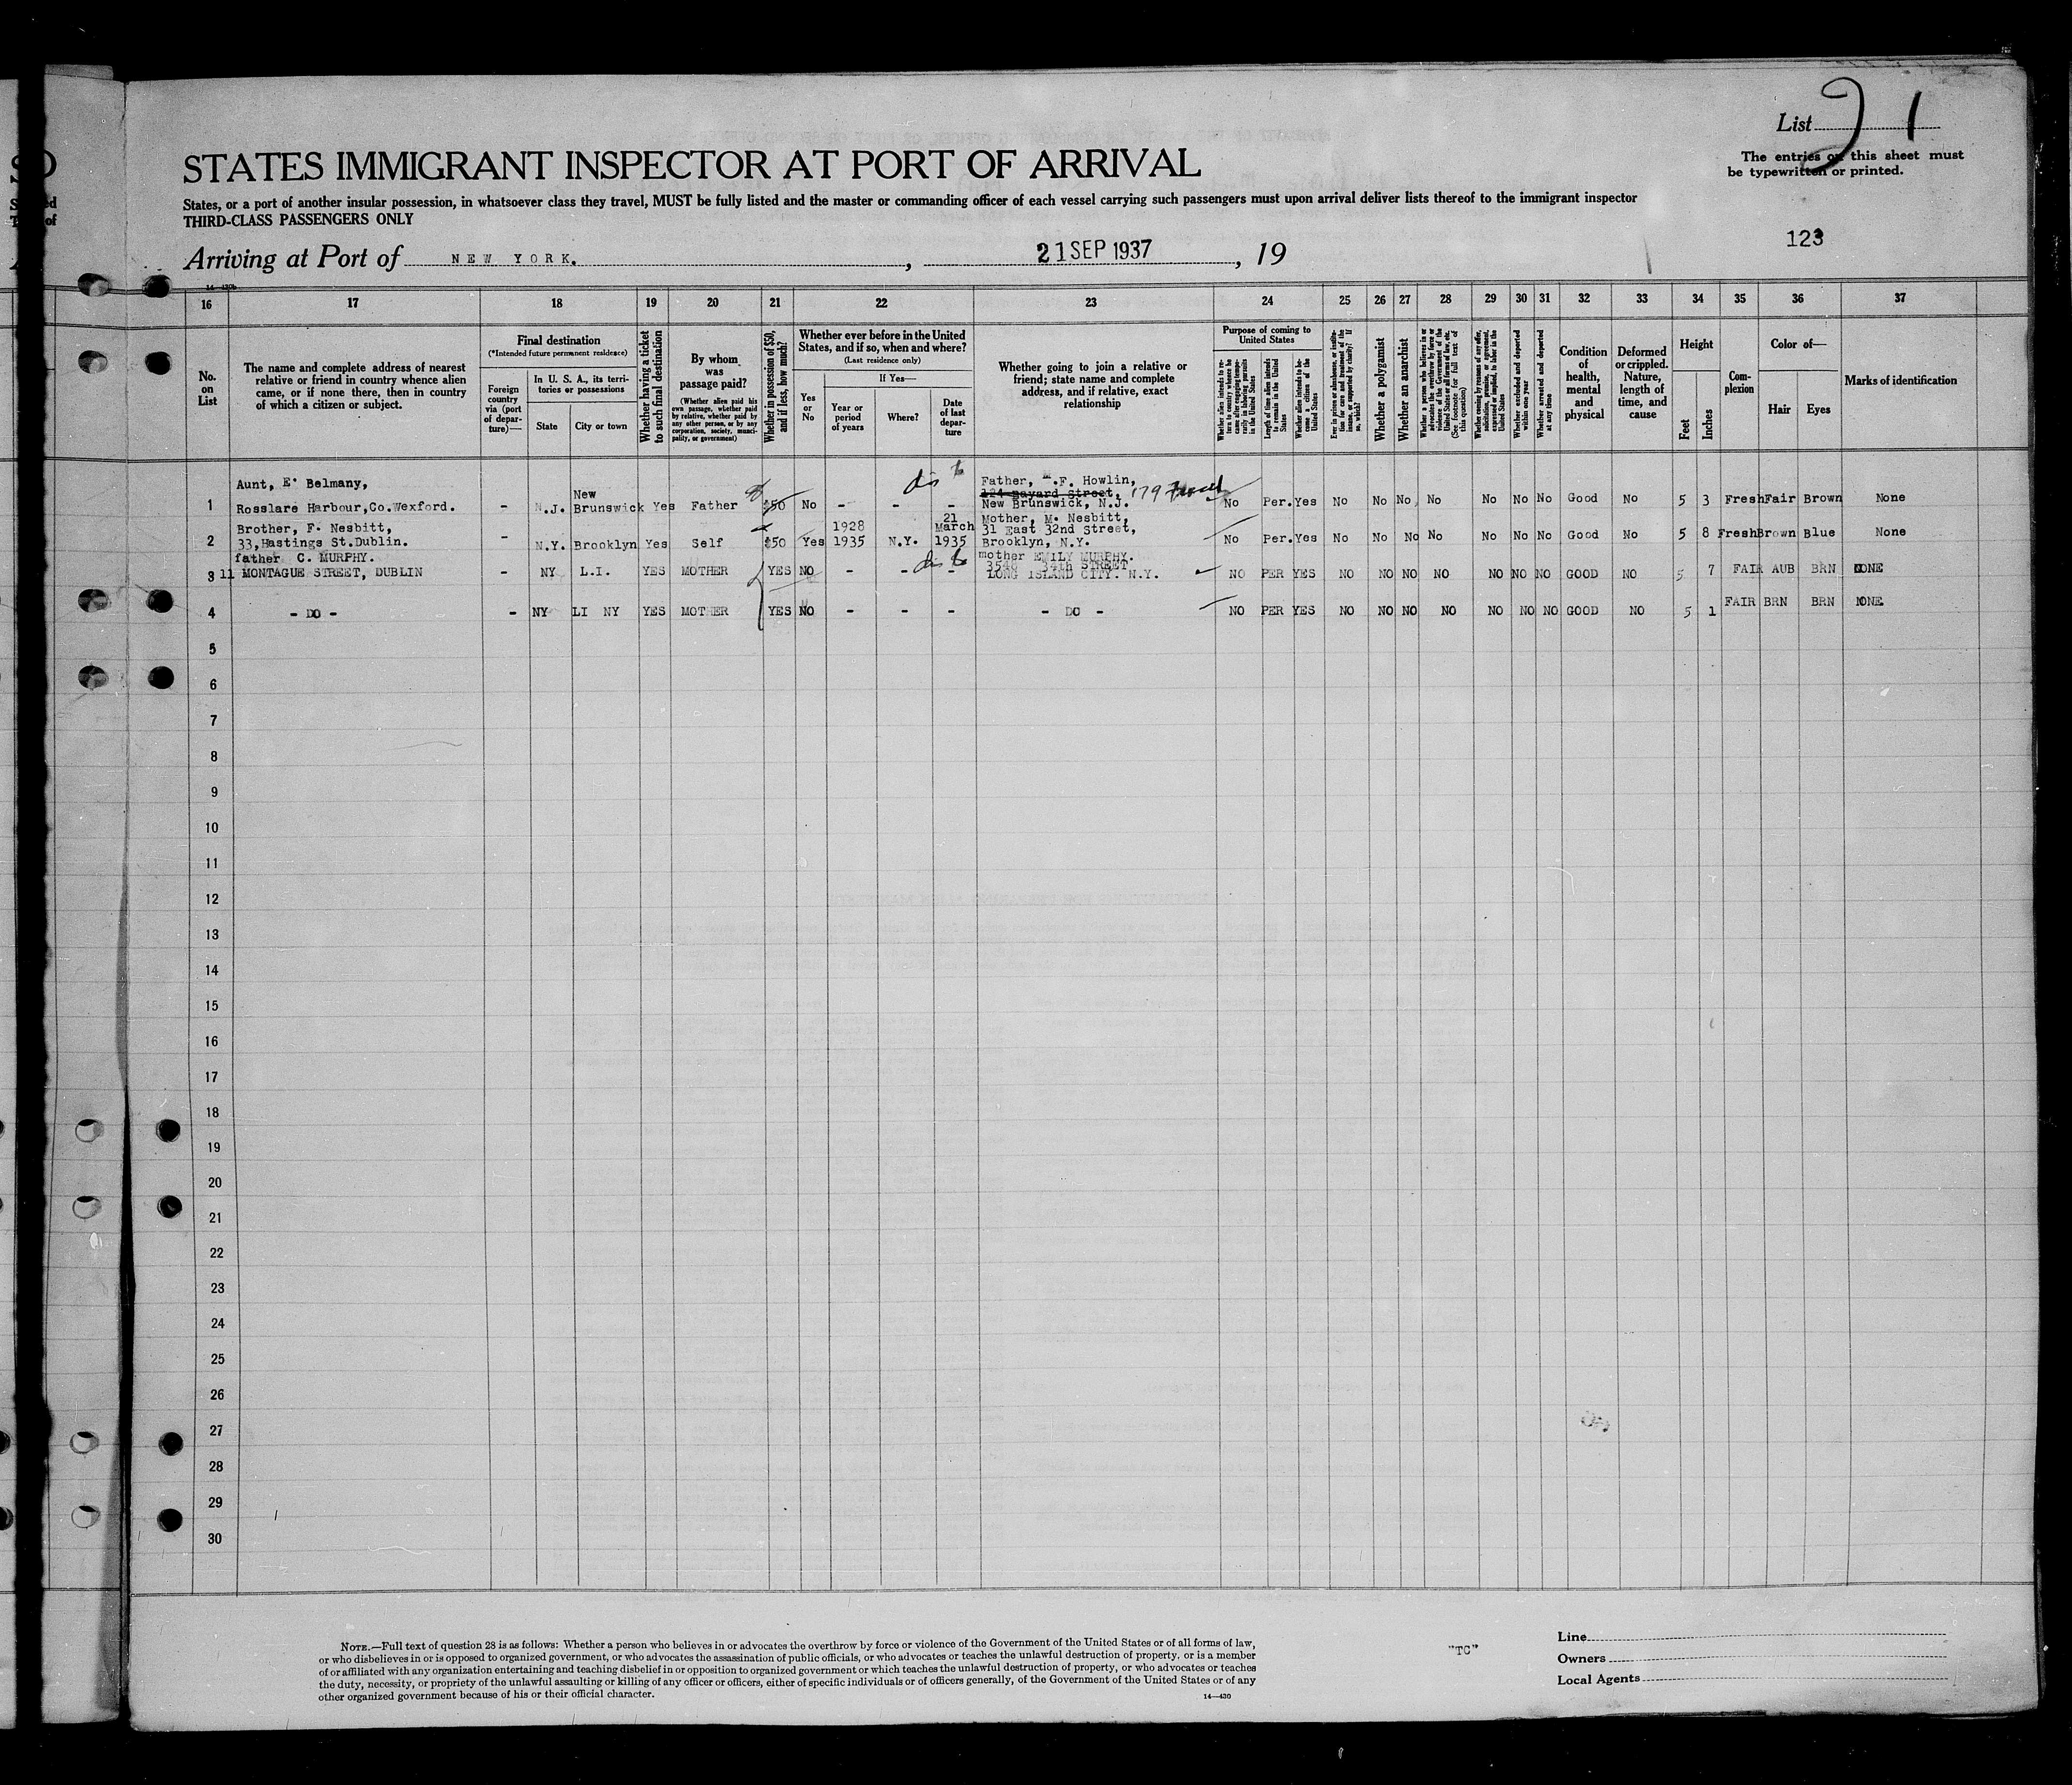 List 21
The entries on this sheet must
be typewritten or printed.
STATES IMMIGRANT INSPECTOR AT PORT OF ARRIVAL
States, or a port of another insular possession, in whatsoever class they travel, MUST be fully listed and the master or commanding officer of each vessel carrying such passengers must upon arrival deliver lists thereof to the immigrant inspector
THIRD-CLASS PASSENGERS ONLY
123
Arriving at Port of NEW YORK. , 21 SEP 1937 , 19
16 17 18 19 20 21 22 23 24 25 26 27 28 29 30 31 32 33 34 35 36 37
No.
on
List
The name and complete address of nearest
relative or friend in country whence alien
came, or if none there, then in country
of which a citizen or subject.
Final destination
(*Intended future permanent residence)
Foreign
country
via (port
of depar-
ture)—
In U. S. A., its terri-
tories or possessions
State
City or town
Whether having a ticket
to such final destination
By whom
was
passage paid?
(Whether alien paid his
own passage, whether paid
by relative, whether paid by
any other person, or by any
corporation, society, munici-
pality, or government)
Whether in possession of $50,
and if less, how much?
Whether ever before in the United
States, and if so, when and where?
(Last residence only)
Yes
or
No
If Yes—
Year or
period
of years
Where?
Date
of last
depar-
ture
Whether going to join a relative or
friend; state name and complete
address, and if relative, exact
relationship
Purpose of coming to
United States
Whether alien intends to re-
turn to country whence he
came after engaging tempo-
rarily in laboring pursuits
in the United States
Length of time alien intends
to remain in the United
States
Whether alien intends to be-
come a citizen of the
United States
Ever in prison or almshouse, or institu-
tion for care and treatment of the
insane, or supported by charity? If
so, which?
Whether a polygamist
Whether an anarchist
Whether a person who believes in or
advocates the overthrow by force or
violence of the Government of the
United States or all forms of law, etc.
(See footnote for full text of
this question)
Whether coming by reason of any offer,
solicitation, promise, or agreement,
expressed or implied, to labor in the
United States
Whether excluded and deported
within one year
Whether arrested and deported
at any time
Condition
of
health,
mental
and
physical
Deformed
or crippled.
Nature,
length of
time, and
cause
Height
Feet
Inches
Com-
plexion
Color of—
Hair
Eyes
Marks of identification
Aunt, E. Belmany,
1 Rosslare Harbour,Co.Wexford. - N.J. New Brunswick Yes Father $50 No - - - Father, .F. Howlin,
124 Bayard Street, 179
New Brunswick, N.J. No Per. Yes No No No No No No No Good No 5 3 Fresh Fair Brown None
Brother, F. Nesbitt,
2 33,Hastings St.Dublin. - N.Y. Brooklyn Yes Self $50 Yes 1928 1935 N.Y. 21 March 1935 Mother, M. Nesbitt,
31 East 32nd Street,
Brooklyn, N.Y. No Per. Yes No No No No No No No Good No 5 8 Fresh Brown Blue None
father C. MURPHY.
3 11 MONTAGUE STREET, DUBLIN - NY L.I. YES MOTHER YES NO - - - mother EMILY MURPHY.
3540 34th STREET
LONG ISLAND CITY. N.Y. NO PER YES NO NO NO NO NO NO NO GOOD NO 5 7 FAIR AUB BRN NONE
4 - DO - - NY LI NY YES MOTHER YES NO - - - - DO - NO PER YES NO NO NO NO NO NO NO GOOD NO 5 1 FAIR BRN BRN NONE
5
6
7
8
9
10
11
12
13
14
15
16
17
18
19
20
21
22
23
24
25
26
27
28
29
30
NOTE.—Full text of question 28 is as follows: Whether a person who believes in or advocates the overthrow by force or violence of the Government of the United States or of all forms of law,
or who disbelieves in or is opposed to organized government, or who advocates the assassination of public officials, or who advocates or teaches the unlawful destruction of property, or is a member
of or affiliated with any organization entertaining and teaching disbelief in or opposition to organized government or which teaches the unlawful destruction of property, or who advocates or teaches
the duty, necessity, or propriety of the unlawful assaulting or killing of any officer or officers, either of specific individuals or of officers generally, of the Government of the United States or of any
other organized government because of his or their official character.
14—430
"TC"
Line
Owners
Local Agents